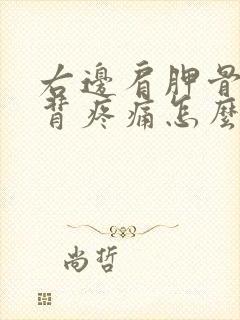 右邊肩胛骨
背疼痛怎麼
尚哲